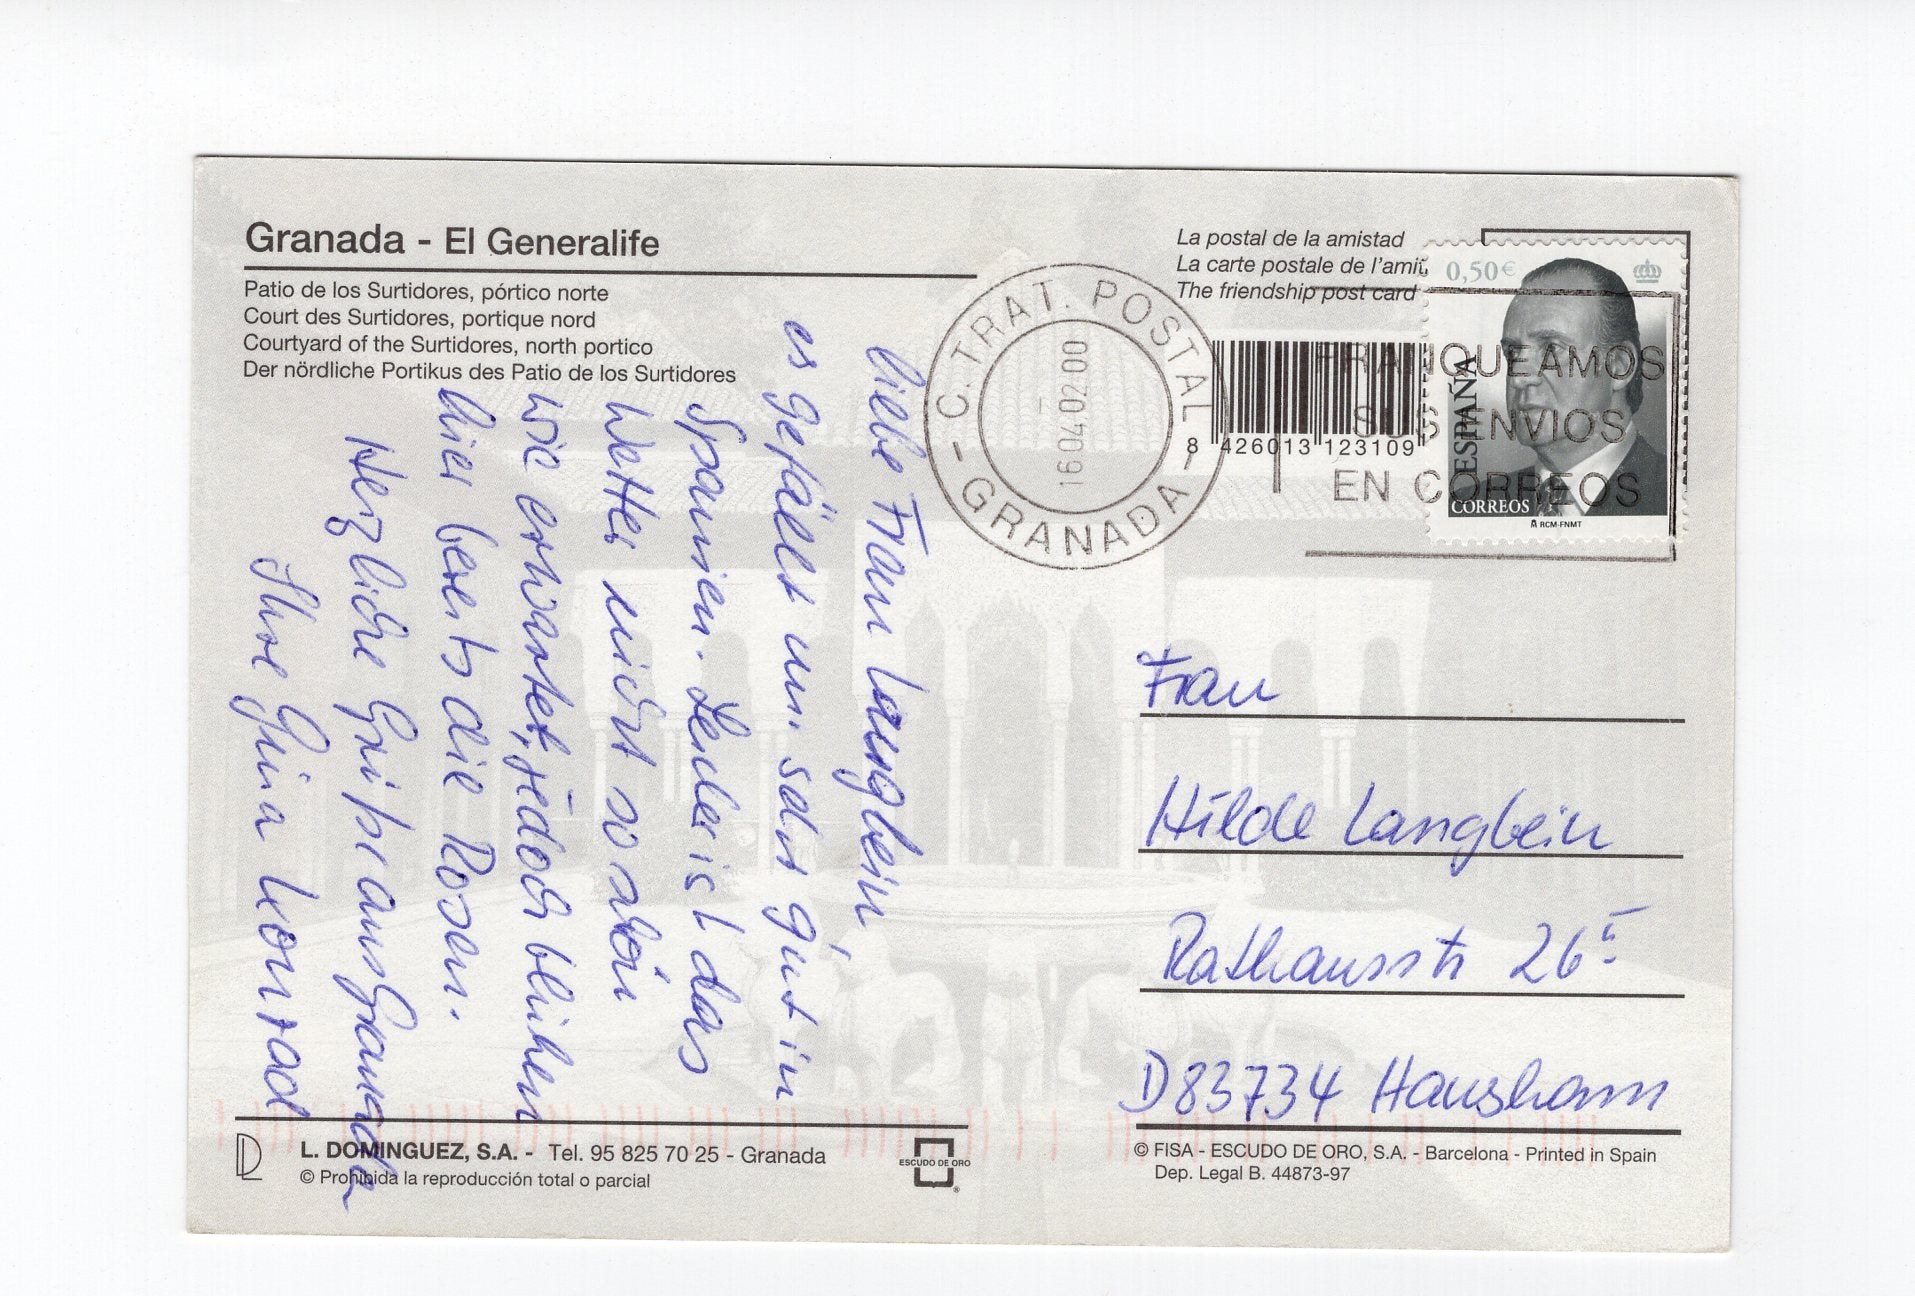 Granada - El Generalife
Patio de los Surtidores, pórtico norte
Court des Surtidores, portique nord
Courtyard of the Surtidores, north portico
Der nördliche Portikus des Patio de los Surtidores
Liebe Frau Langbein,
es gefällt uns sehr gut in
Spanien. Leider ist das
Wetter nicht so schön
wie erwartet, jedoch blühen
hier bereits die Rosen.
Herzliche Grüße aus Granada
Ihre Gina Konrad
La postal de la amistad
La carte postale de l'amit
The friendship post card
C. TRAT. POSTAL
- GRANADA -
16.04.02.00
8 426013 123109
0,50€
ESPAÑA
CORREOS
RCM-FNMT
FRANQUEAMOS
SUS ENVIOS
EN CORREOS
Frau
Hilde Langbein
Rathausstr 26
D 83734 Hausham
L. DOMINGUEZ, S.A. - Tel. 95 825 70 25 - Granada
© Prohibida la reproducción total o parcial
ESCUDO DE ORO
®
© FISA - ESCUDO DE ORO, S.A. - Barcelona - Printed in Spain
Dep. Legal B. 44873-97